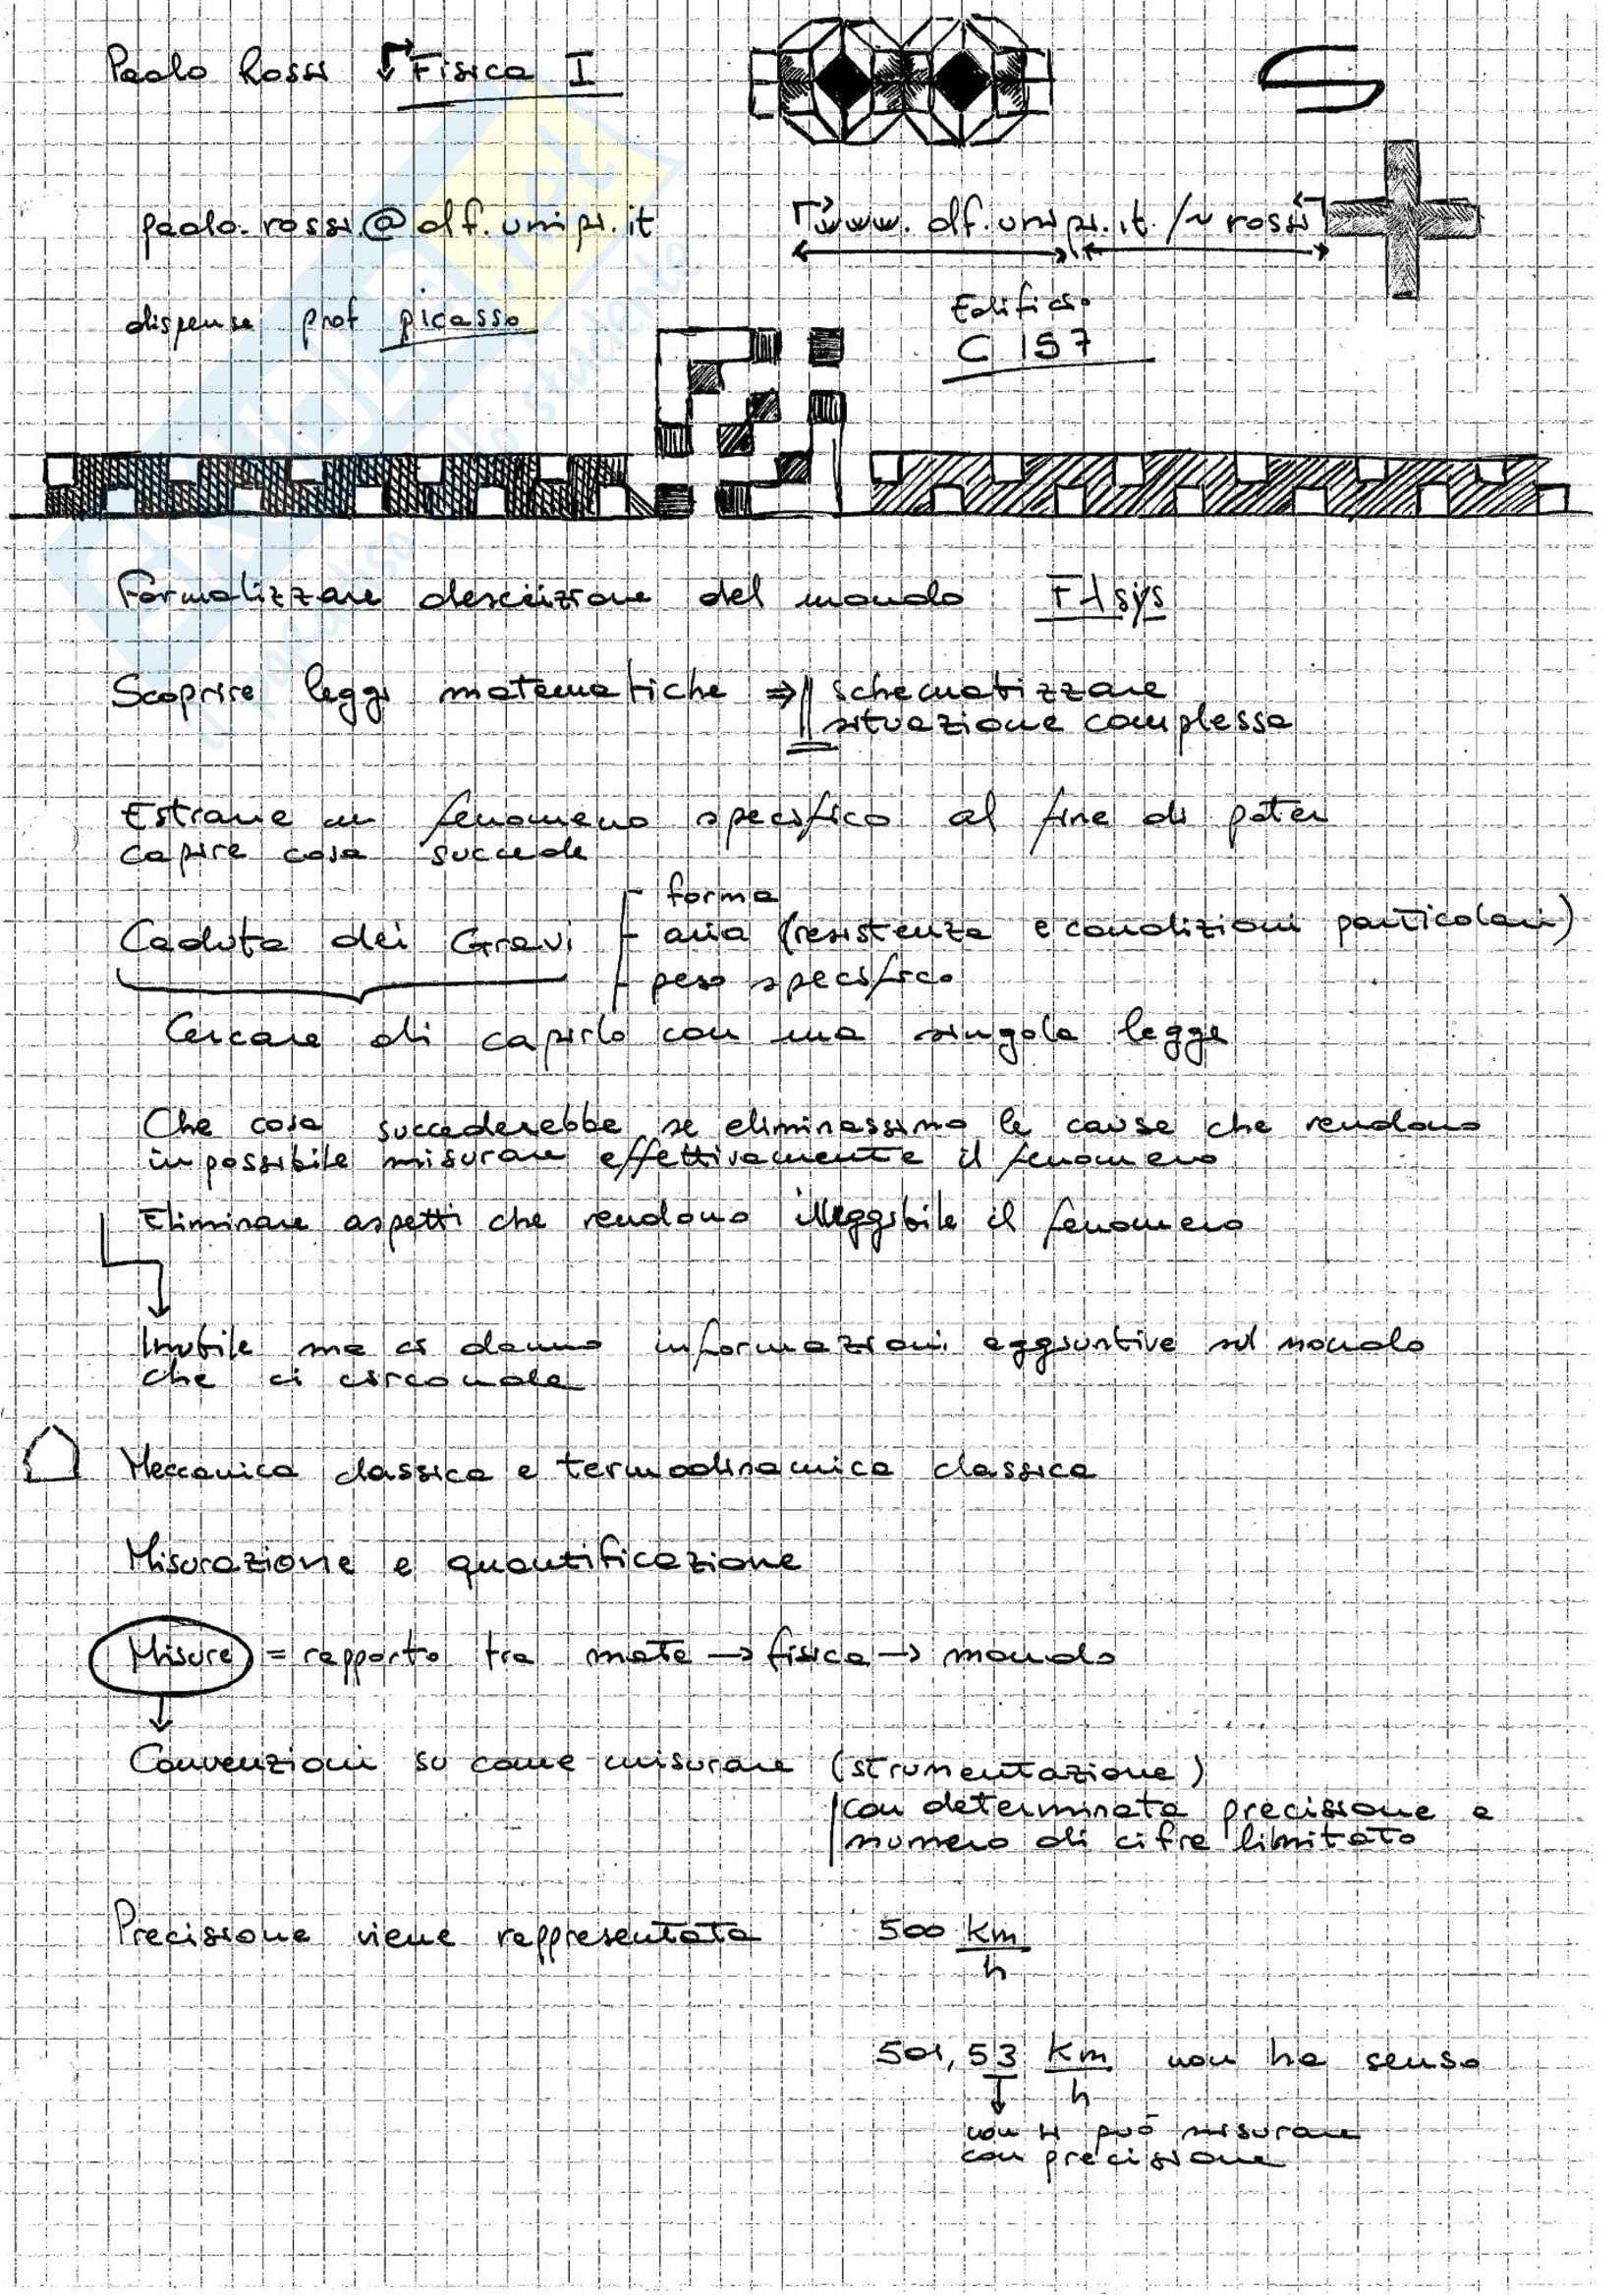 Paolo Rossi Fisica I
paolo.rossi@df.unipi.it www.df.unipi.it/~rossi
dispense prof picasso
Edificio
C 157
Formalizzare descrizione del mondo
Scoprire leggi matematiche ⇒ schematizzare
situazione complessa
Estrarre un fenomeno specifico al fine di poter
capire cosa succede
forma
Caduta dei Gravi aria (resistenza e condizioni particolari)
peso specifico
Cercare di capirlo con una singola legge
Che cosa succederebbe se eliminassimo le cause che rendono
impossibile misurare effettivamente il fenomeno
Eliminare aspetti che rendono illeggibile il fenomeno
Inutile ma ci danno informazioni aggiuntive sul mondo
che ci circonda
Meccanica classica e termodinamica classica
Misurazione e quantificazione
Misure = rapporto tra mate → fisica → mondo
Convenzioni su come misurare (strumentazione)
con determinata precisione e
numero di cifre limitato
Precisione viene rappresentata 500 Km
h
501,53 Km non ha senso
h
non si può misurare
con precisione